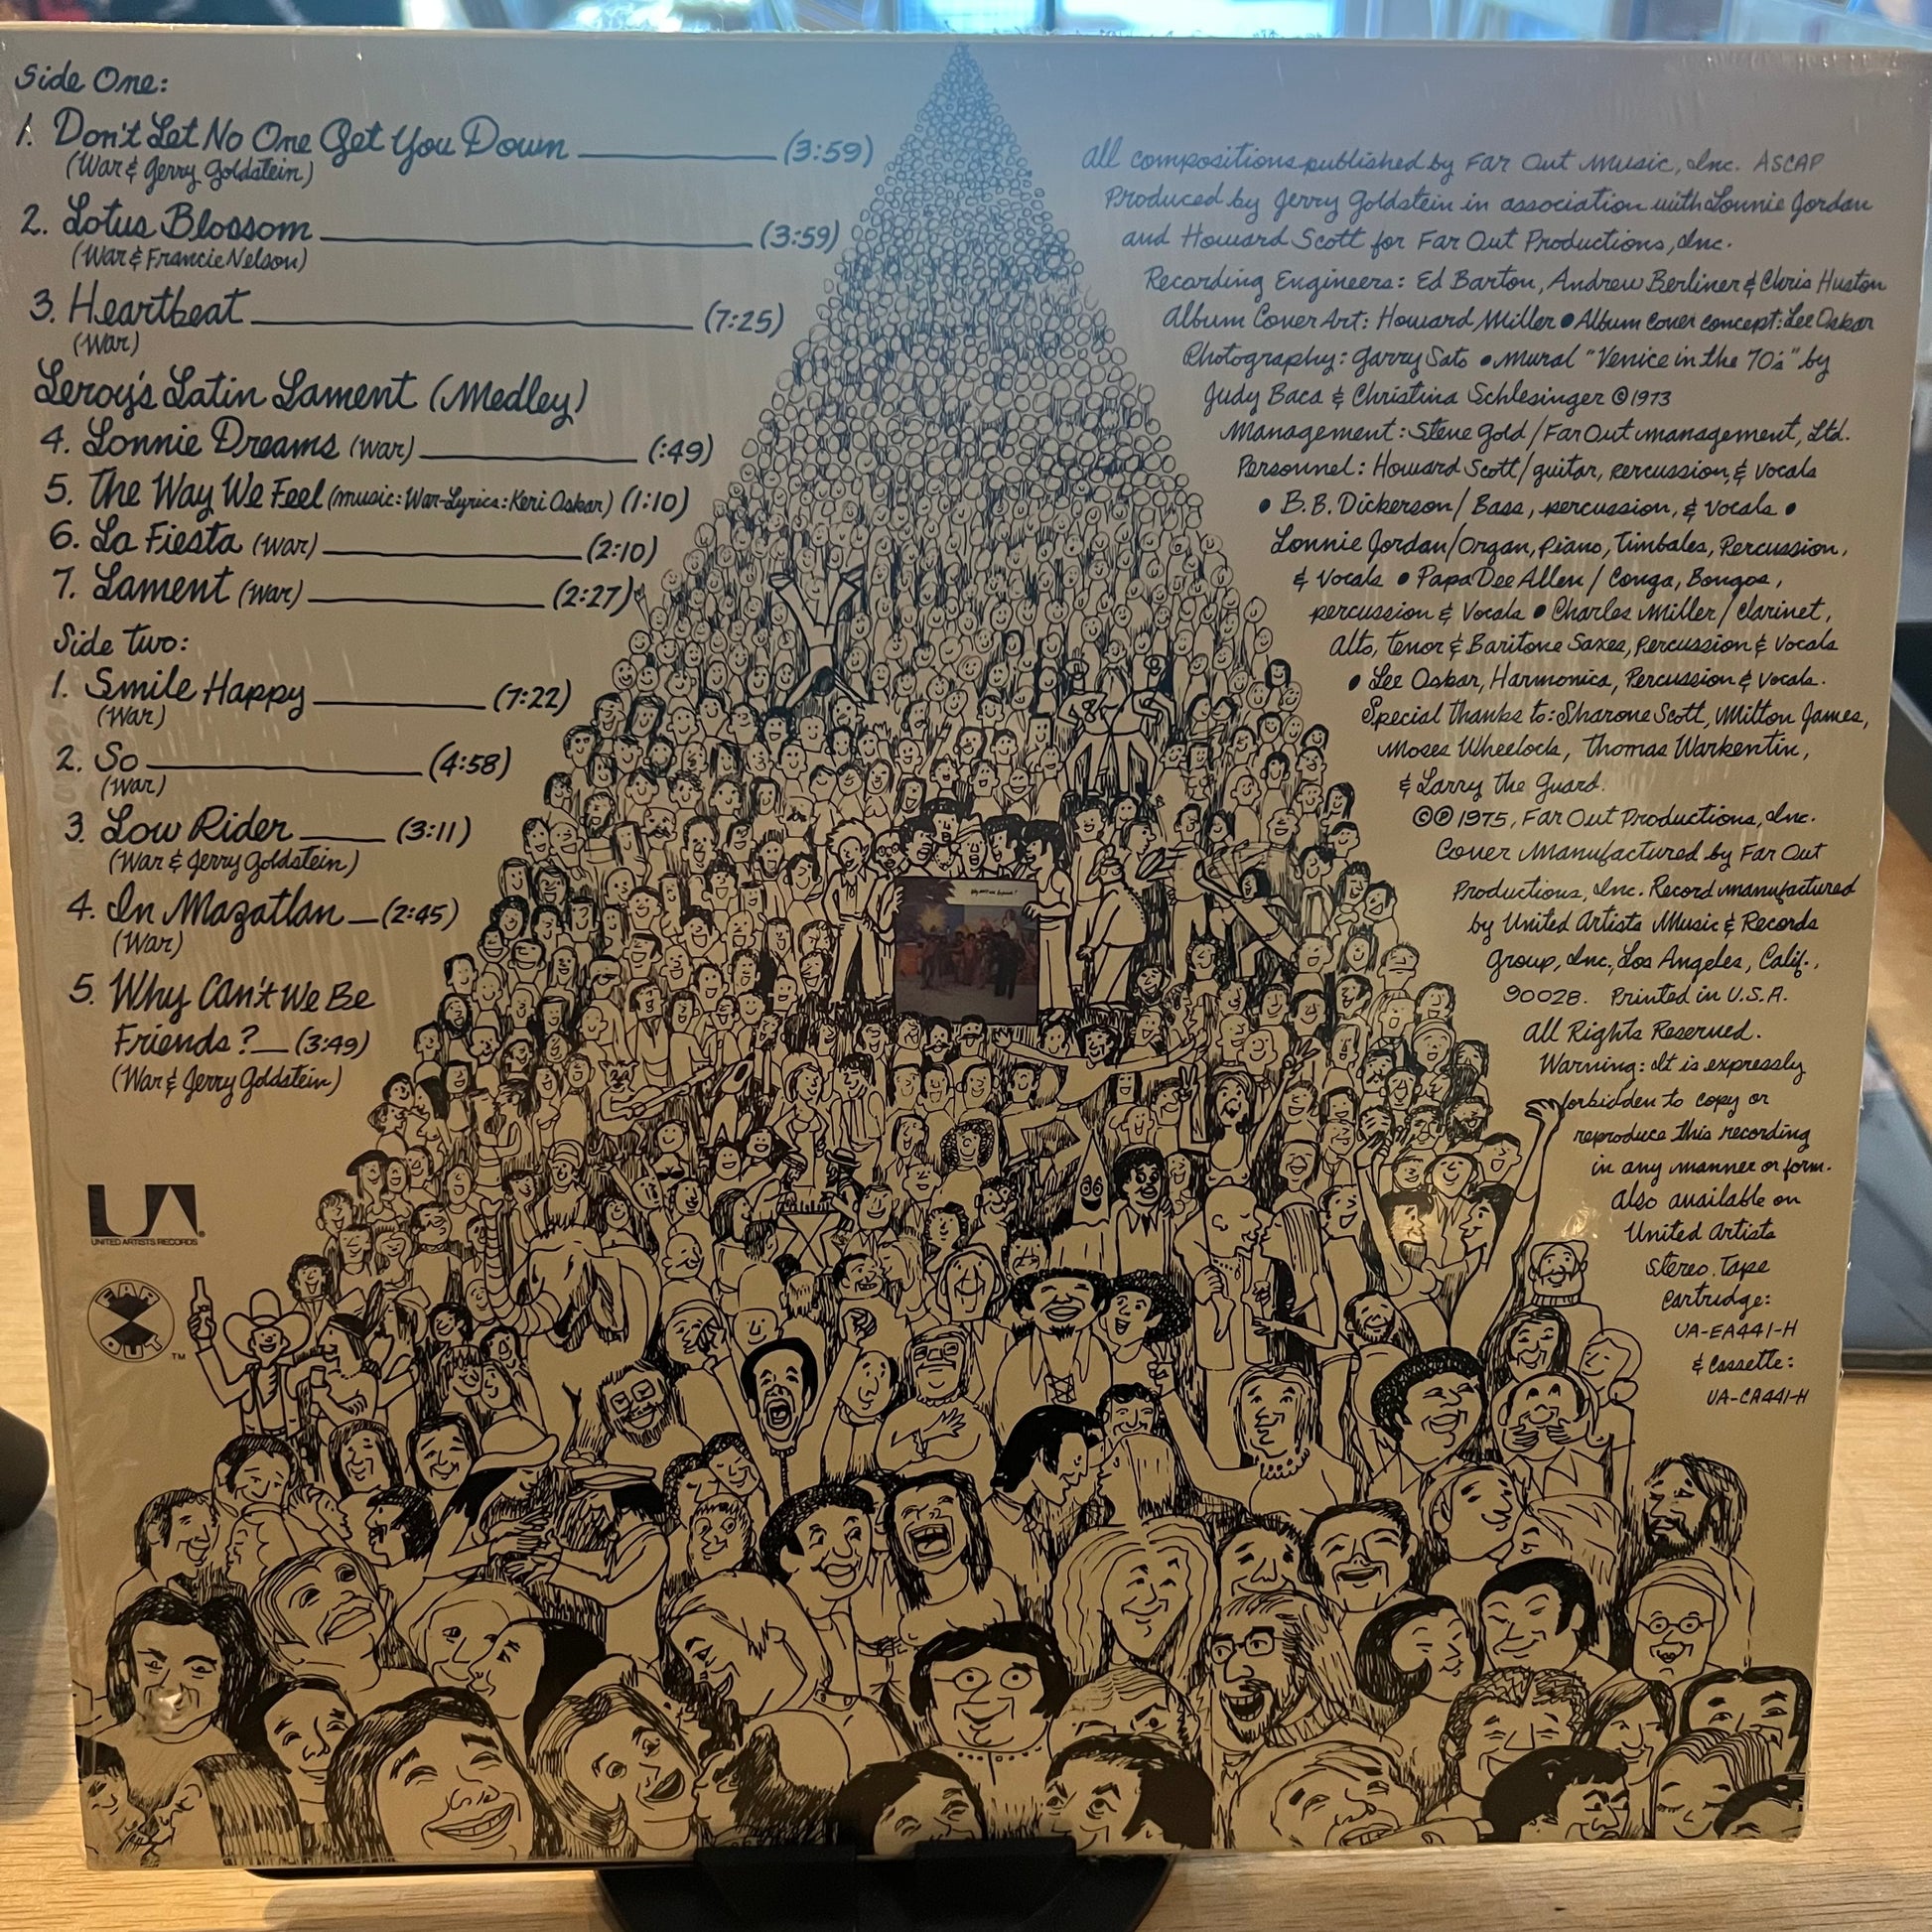 Side One:
1. Don't Let No One Get You Down (3:59)
(War & Jerry Goldstein)
2. Lotus Blossom (3:59)
(War & Francie Nelson)
3. Heartbeat (7:25)
(War)
Leroy's Latin Lament (Medley)
4. Lonnie Dreams (War) (:49)
5. The Way We Feel (music: War-Lyrics: Keri Oskar) (1:10)
6. La Fiesta (War) (2:10)
7. Lament (War) (2:27)
Side two:
1. Smile Happy (7:22)
(War)
2. So (4:58)
(War)
3. Low Rider (3:11)
(War & Jerry Goldstein)
4. In Mazatlan (2:45)
(War)
5. Why Can't We Be
Friends? (3:49)
(War & Jerry Goldstein)
UA
UNITED ARTISTS RECORDS®
FAR
OUT
™
All compositions published by Far Out Music, Inc. ASCAP
Produced by Jerry Goldstein in association with Lonnie Jordan
and Howard Scott for Far Out Productions, Inc.
Recording Engineers: Ed Barton, Andrew Berliner & Chris Huston
Album Cover Art: Howard Miller • Album cover concept: Lee Oskar
Photography: Garry Sato • Mural "Venice in the 70's" by
Judy Baca & Christina Schlesinger © 1973
Management: Steve Gold / Far Out management, Ltd.
Personnel: Howard Scott / guitar, percussion, & vocals
• B.B. Dickerson / Bass, percussion, & vocals •
Lonnie Jordan / Organ, Piano, Timbales, Percussion,
& Vocals • Papa Dee Allen / Conga, Bongos,
percussion & Vocals • Charles Miller / Clarinet,
Alto, Tenor & Baritone Saxes, Percussion & Vocals
• Lee Oskar, Harmonica, Percussion & Vocals.
Special thanks to: Sharone Scott, Milton James,
Moses Wheelock, Thomas Warkentin,
& Larry the Guard.
© ℗ 1975, Far Out Productions, Inc.
Cover Manufactured by Far Out
Productions, Inc. Record manufactured
by United Artists Music & Records
Group, Inc., Los Angeles, Calif.,
90028. Printed in U.S.A.
All Rights Reserved.
Warning: It is expressly
forbidden to copy or
reproduce this recording
in any manner or form.
Also available on
United Artists
Stereo Tape
Cartridge:
UA-EA441-H
& Cassette:
UA-CA441-H